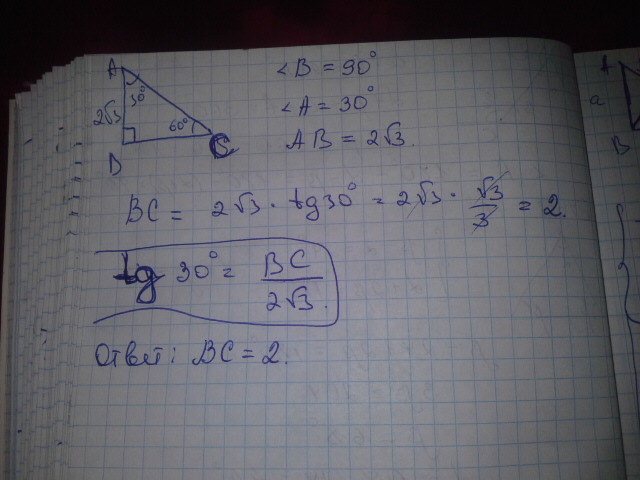 A
30°
2√3
60°
C
D
∠B = 90°
∠A = 30°
AB = 2√3.
BC = 2√3 · tg30° = 2√3 · √3/3 = 2.
tg 30° = BC/2√3.
Ответ: BC = 2.
A
a
B